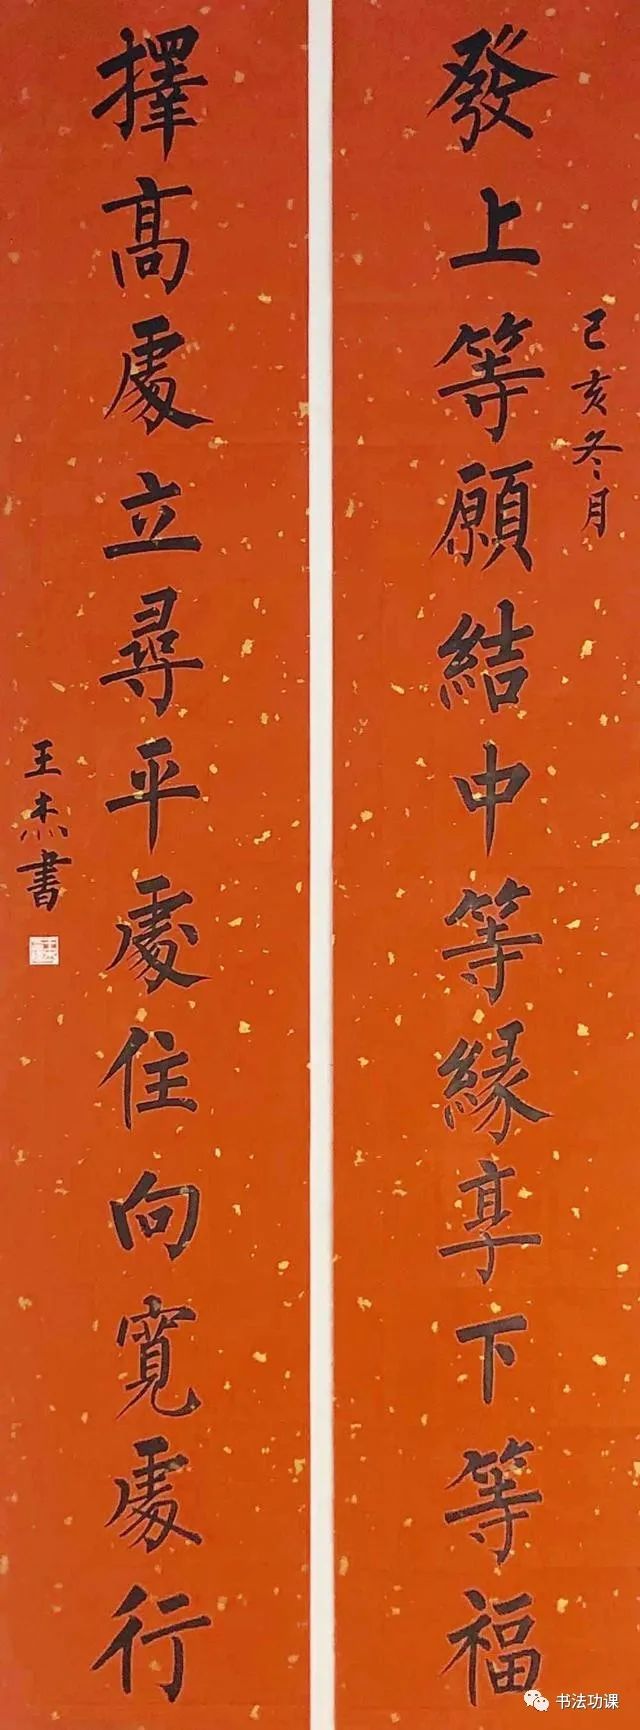 己亥冬月
發上等願結中等緣享下等福
擇高處立尋平處住向寬處行
王杰書
书法功课